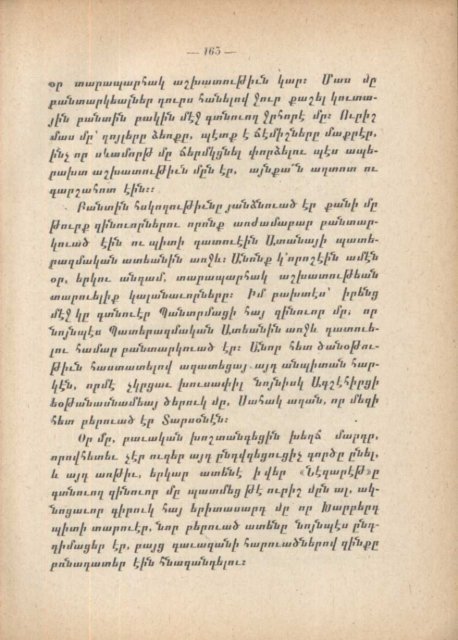 — 165 —
օր տարապարհակ աշխատութիւն կար։ Մաս մը
բանտարկեալներ դուրս հանելով ջուր քաշել կուտա-
յին բանտին բակին մէջ գտնուող ջրհորէ մը։ Ուրիշ
մաս մը՝ դոյլերը ձեռքը, պէտք է ճէմիշները մաքրէր,
ինչ որ սևամորթ մը ճերմկցնել փորձելու պէս ապե-
րախտ աշխատութիւն մըն էր, այնքա՜ն աղտոտ ու
գարշահոտ էին։։
Բանտին հսկողութիւնը յանձնուած էր քանի մը
թուրք զինուորներու որոնք առժամաբար բանտար-
կուած էին ու պիտի դատուէին Ատանայի պատե-
րազմական ատեանին առջև։ Անոնք կ՚որոշէին ամէն
օր, երկու անգամ, տարապարհակ աշխատութեան
տարուելիք կալանաւորները։ Իմ բախտէս՝ իրենց
մէջ կը գտնուէր Պանտրմացի հայ զինուոր մը, որ
նոյնպէս Պատերազմական Ատեանին առջև դատուե-
լու համար բանտարկուած էր։ Անոր հետ ծանօթու-
թիւն հաստատելով ազատեցայ այդ անպիտան հար-
կէն, որմէ չկրցաւ խուսափիլ նոյնիսկ Ագշէհիրցի
եօթանասնամեայ ծերուկ մը, Սահակ աղան, որ մեզի
հետ բերուած էր Տարսօնէն։
Օր մը, բաւական խոշտանգեցին խեղճ մարդը,
որովհետեւ չէր ուզեր այդ ընդվզեցուցիչ գործը ընել,
և այդ առթիւ, երկար ատենէ ի վեր «Նէզարէթ»ը
գտնուող զինուոր մը պատմեց թէ ուրիշ մըն ալ, ակ-
նոցաւոր գիրուկ հայ երիտասարդ մը որ Խարբերդ
պիտի տարուէր, նոր բերուած ատենը նոյնպէս ընդ-
դիմացեր էր, բայց գաւազանի հարուածներով զինքը
բռնադատեր էին հնազանդելու։